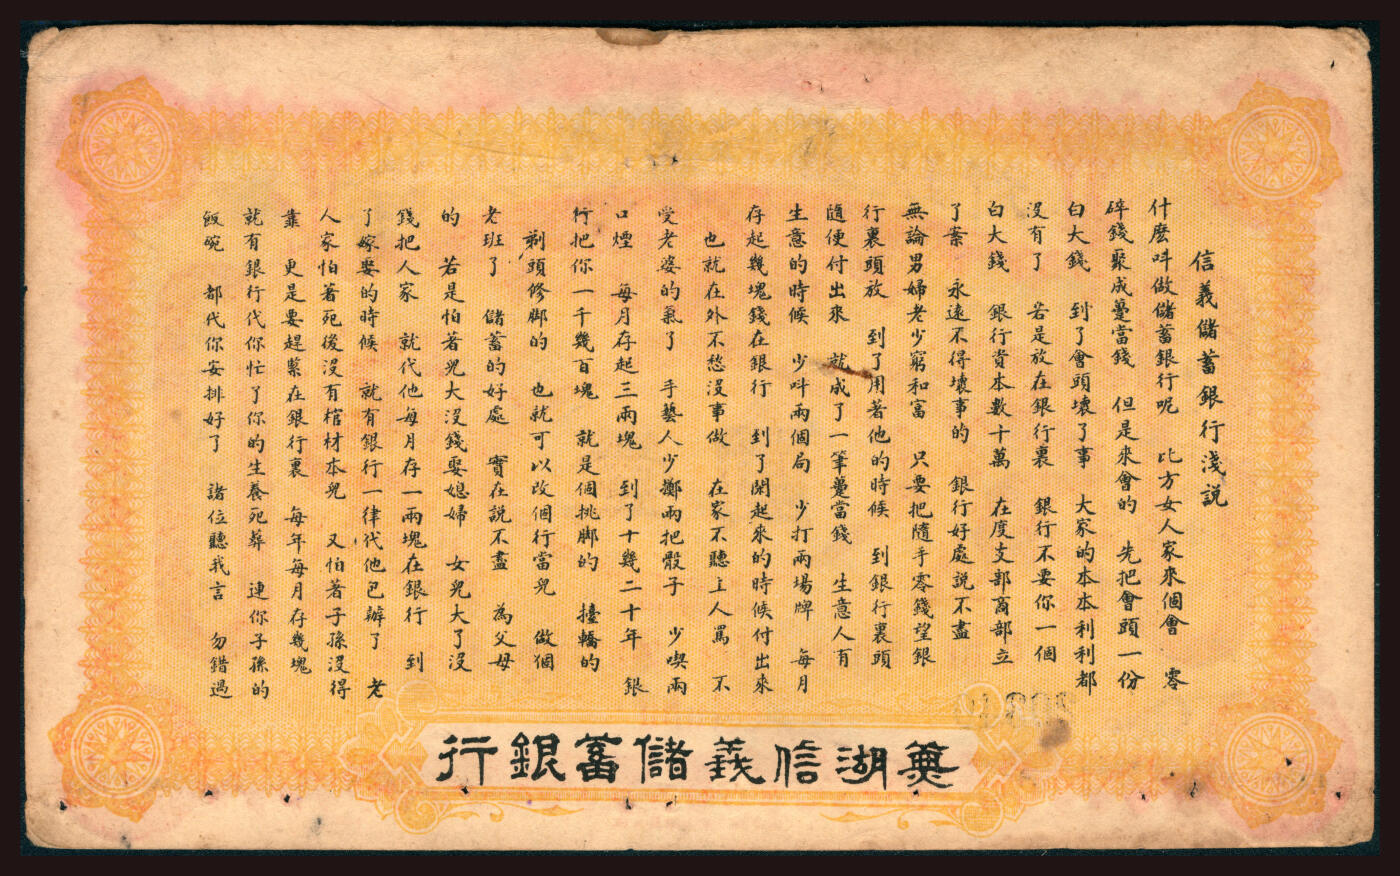 信義儲蓄銀行淺説
什麽呌做儲蓄銀行呢 比方女人家來個會 零
碎錢聚成躉當錢 但是來會的 先把會頭一份
白大錢 到了會頭壞了事 大家的本本利利都
沒有了 若是放在銀行裏 銀行不要你一個
白大錢 銀行資本數十萬 在度支部商部立
了案 永遠不得壞事的 銀行好處説不盡
無論男婦老少窮和富 只要把隨手零錢望銀
行裏頭放 到了用著他的時候 到銀行裏頭
隨便付出來 就成了一筆躉當錢 生意人有
生意的時候 少呌兩個局 少打兩場牌 每月
存起幾塊錢在銀行 到了閑起來的時候付出來
也就在外不愁沒事做 在家不聽上人罵 不
受老婆的氣了 手藝人少擲兩把骰子 少喫兩
口煙 每月存起三兩塊 到了十幾二十年 銀
行把你一千幾百塊 就是個挑脚的 擡轎的
剃頭修脚的 也就可以改個行當兒 做個
老班了 儲蓄的好處 實在説不盡 為父母
的 若是怕著兒大沒錢娶媳婦 女兒大了沒
錢把人家 就代他每月存一兩塊在銀行 到
了嫁娶的時候 就有銀行一律代他已辦了 老
人家怕著死後沒有棺材本兒 又怕著子孫沒得
靠 更是要趕緊在銀行裏 每年每月存幾塊
就有銀行代你忙了你的生養死葬 連你子孫的
飯碗 都代你安排好了 諸位聽我言 勿錯過
蕪湖信義儲蓄銀行